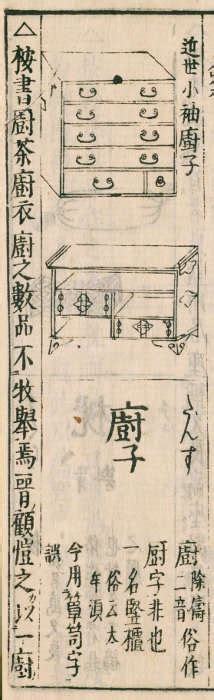 近世小袖廚子
廚子
たんす
廚 除儔二音 俗作
厨字非也
一名豎櫃
俗云太牟須
今用簞笥字
誤
△按書廚茶廚衣廚之數品不牧舉焉皆顧愷之以一廚